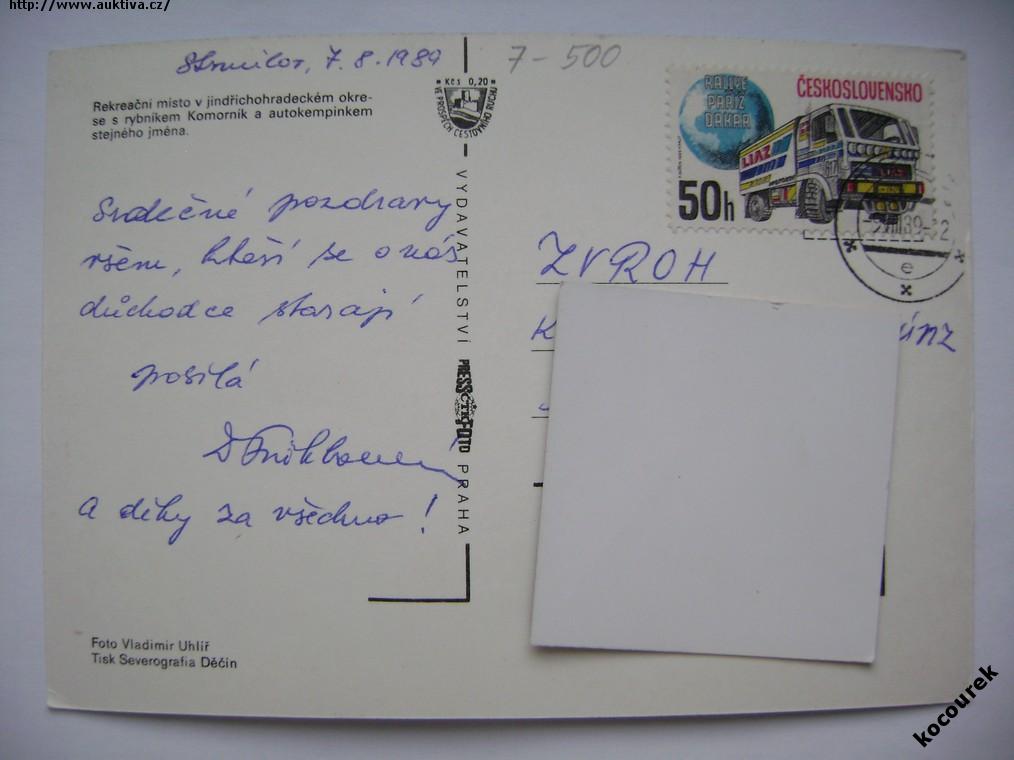 http://www.auktiva.cz/
Strmilov, 7.8.1989
7-500
Rekreační místo v jindřichohradeckém okre-
se s rybníkem Komorník a autokempinkem
stejného jména.
Kčs 0,20
VE PROSPĚCH CESTOVNÍHO RUCHU
RALLYE
PAŘÍŽ
DAKAR
ČESKOSLOVENSKO
LIAZ
50h
Srdečné pozdravy
všem, kteří se o nás
důchodce starají
posílá
a díky za všechno!
VYDAVATELSTVÍ PRESSFOTO PRAHA
ČTK
ZVROH
K
únz
e
Foto Vladimír Uhlíř
Tisk Severografia Děčín
kocourek